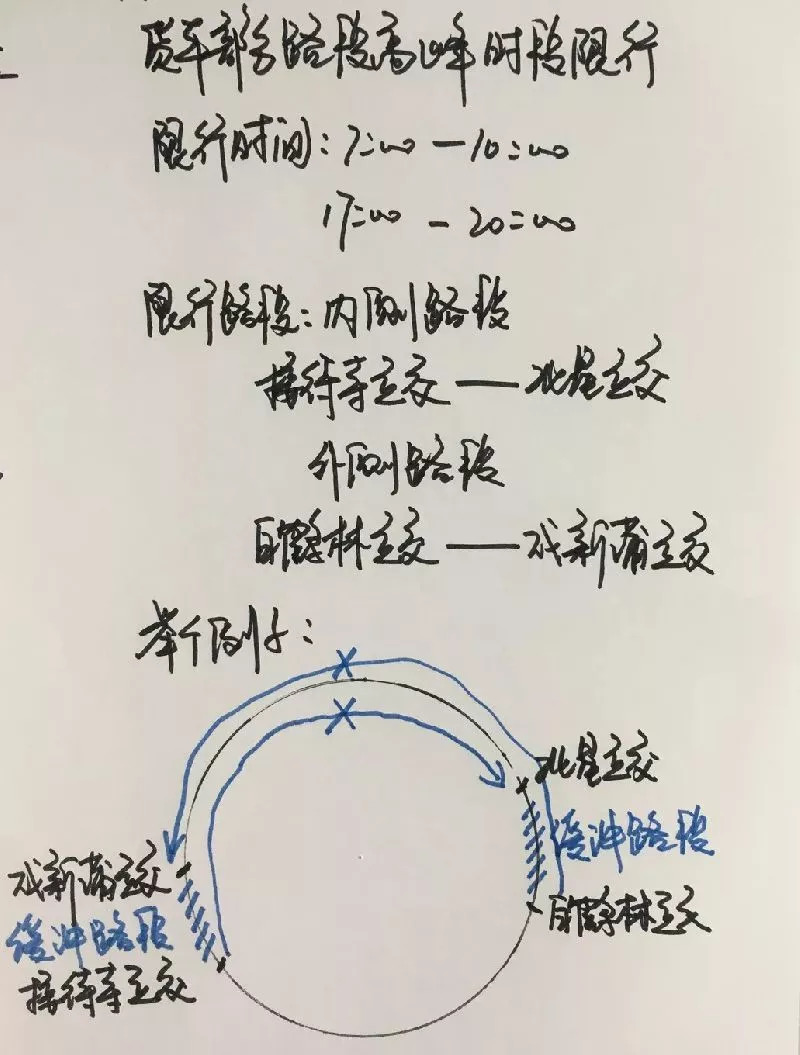 货车部分路段高峰时段限行
限行时间：7:00 — 10:00
17:00 — 20:00
限行路段：内侧路段
接待寺立交 — 北星立交
外侧路段
白龙林立交 — 戒新蒲立交
举个例子：
北星立交
缓冲路段
立交
新蒲立交
缓冲路段
接待寺立交